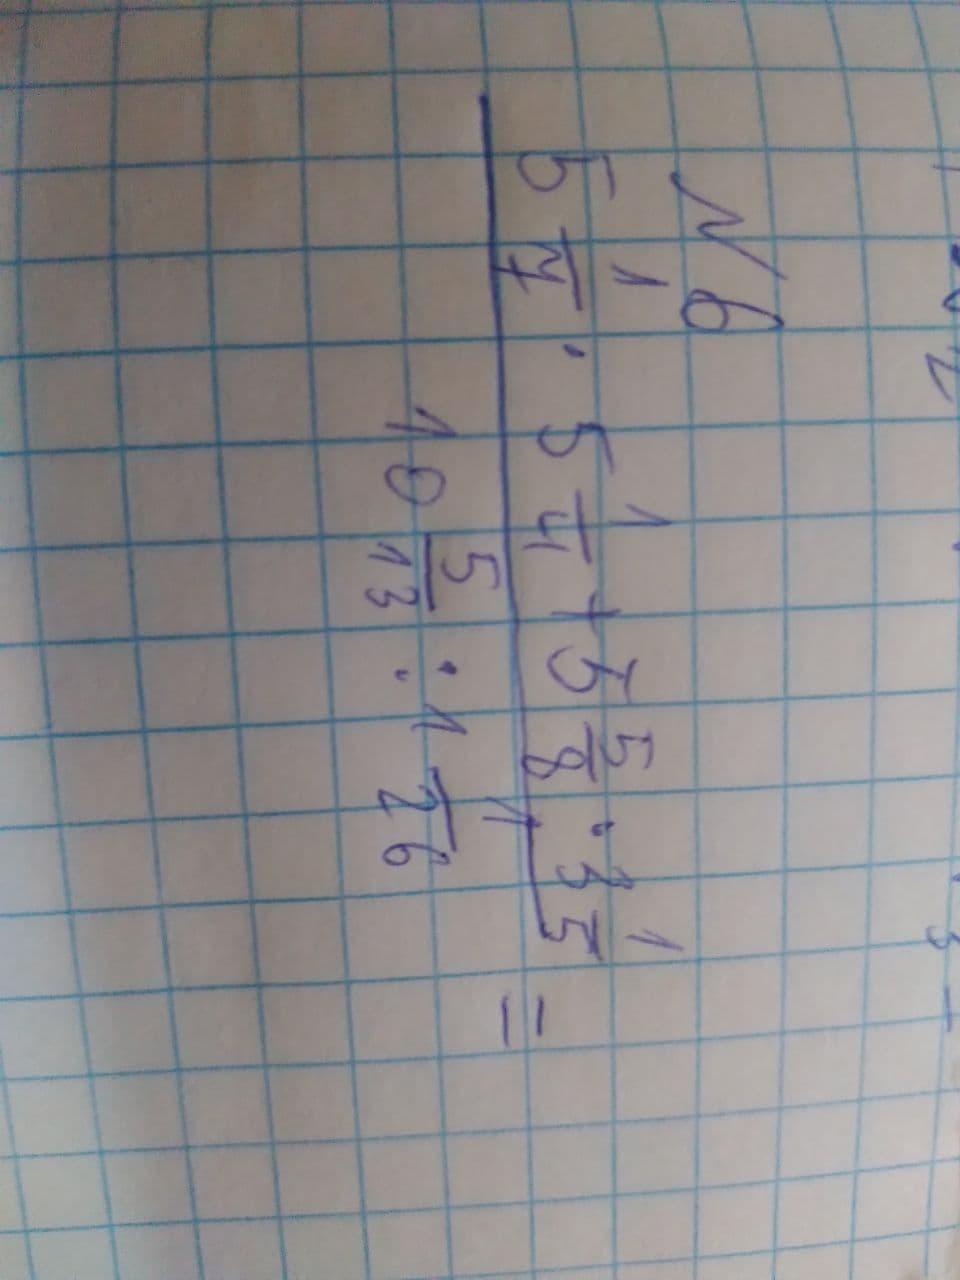 №6
5 1/7 · 5 1/4 + 5 5/8 · 3 1/5
10 5/13 : 1 1/26 =